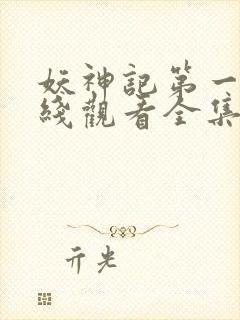 妖神記第一
綫觀看全集
亓光